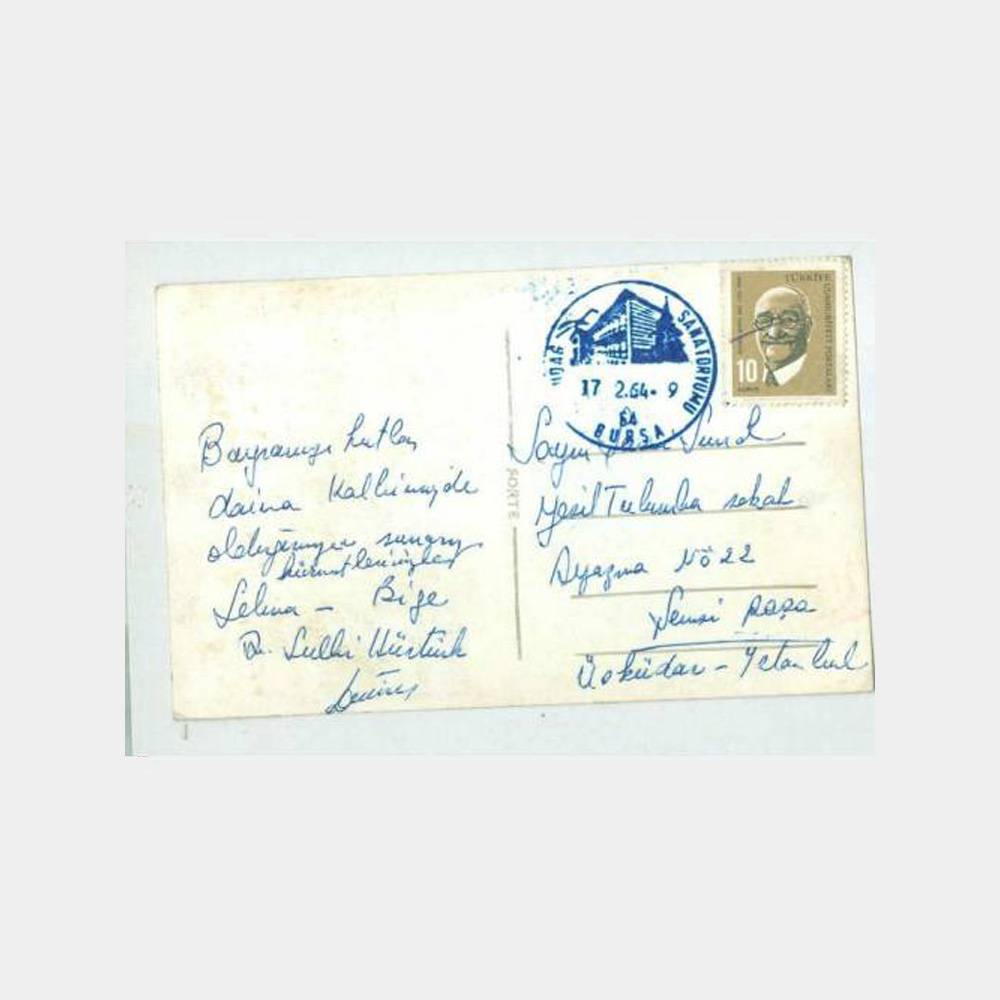 Bayramızı kutlar,
daima kalbimizde
olduğunuzu sunarız
hürmetlerimizle
Selma - Bige
Dr. Sulhi Hüstürk
SORTE
SANATORYUMU
17 2.64- 9
64
BURSA
TÜRKİYE CUMHURİYETİ POSTALARI
10
Sayın Sunal
Yeşil Tulumba sokak
Ayazma No 22
Şemsi paşa
Üsküdar - İstanbul